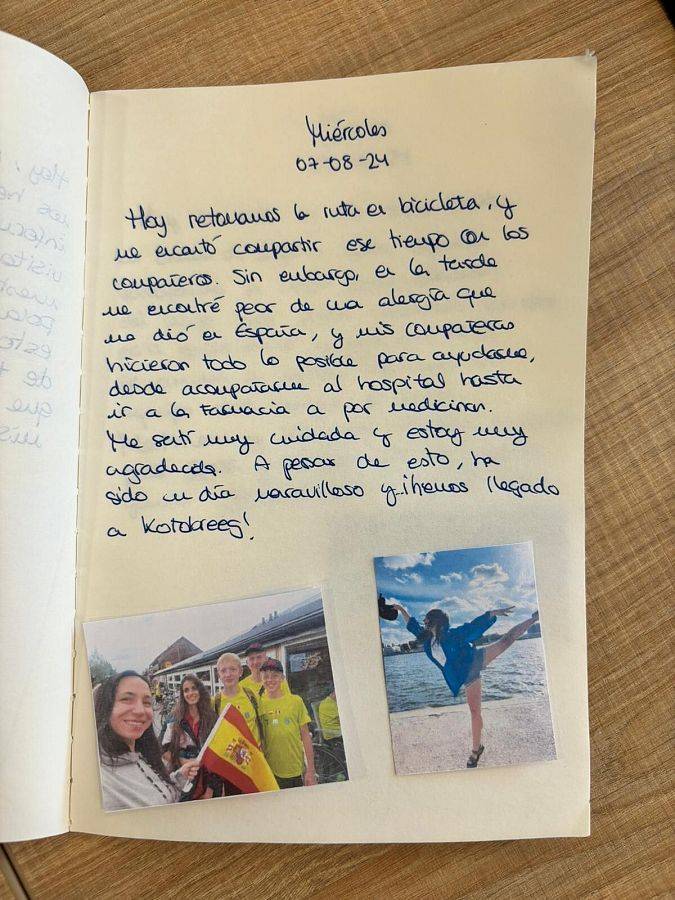 Miércoles
07-08-24
Hoy retomamos la ruta en bicicleta, y
me encantó compartir ese tiempo con los
compañeros. Sin embargo, en la tarde
me encontré peor de una alergia que
me dió en España, y mis compañeros
hicieron todo lo posible para ayudarme,
desde acompañarme al hospital hasta
ir a la farmacia a por medicinas.
Me sentí muy cuidada y estoy muy
agradecida. A pesar de esto, ha
sido un día maravilloso y... ¡hemos llegado
a